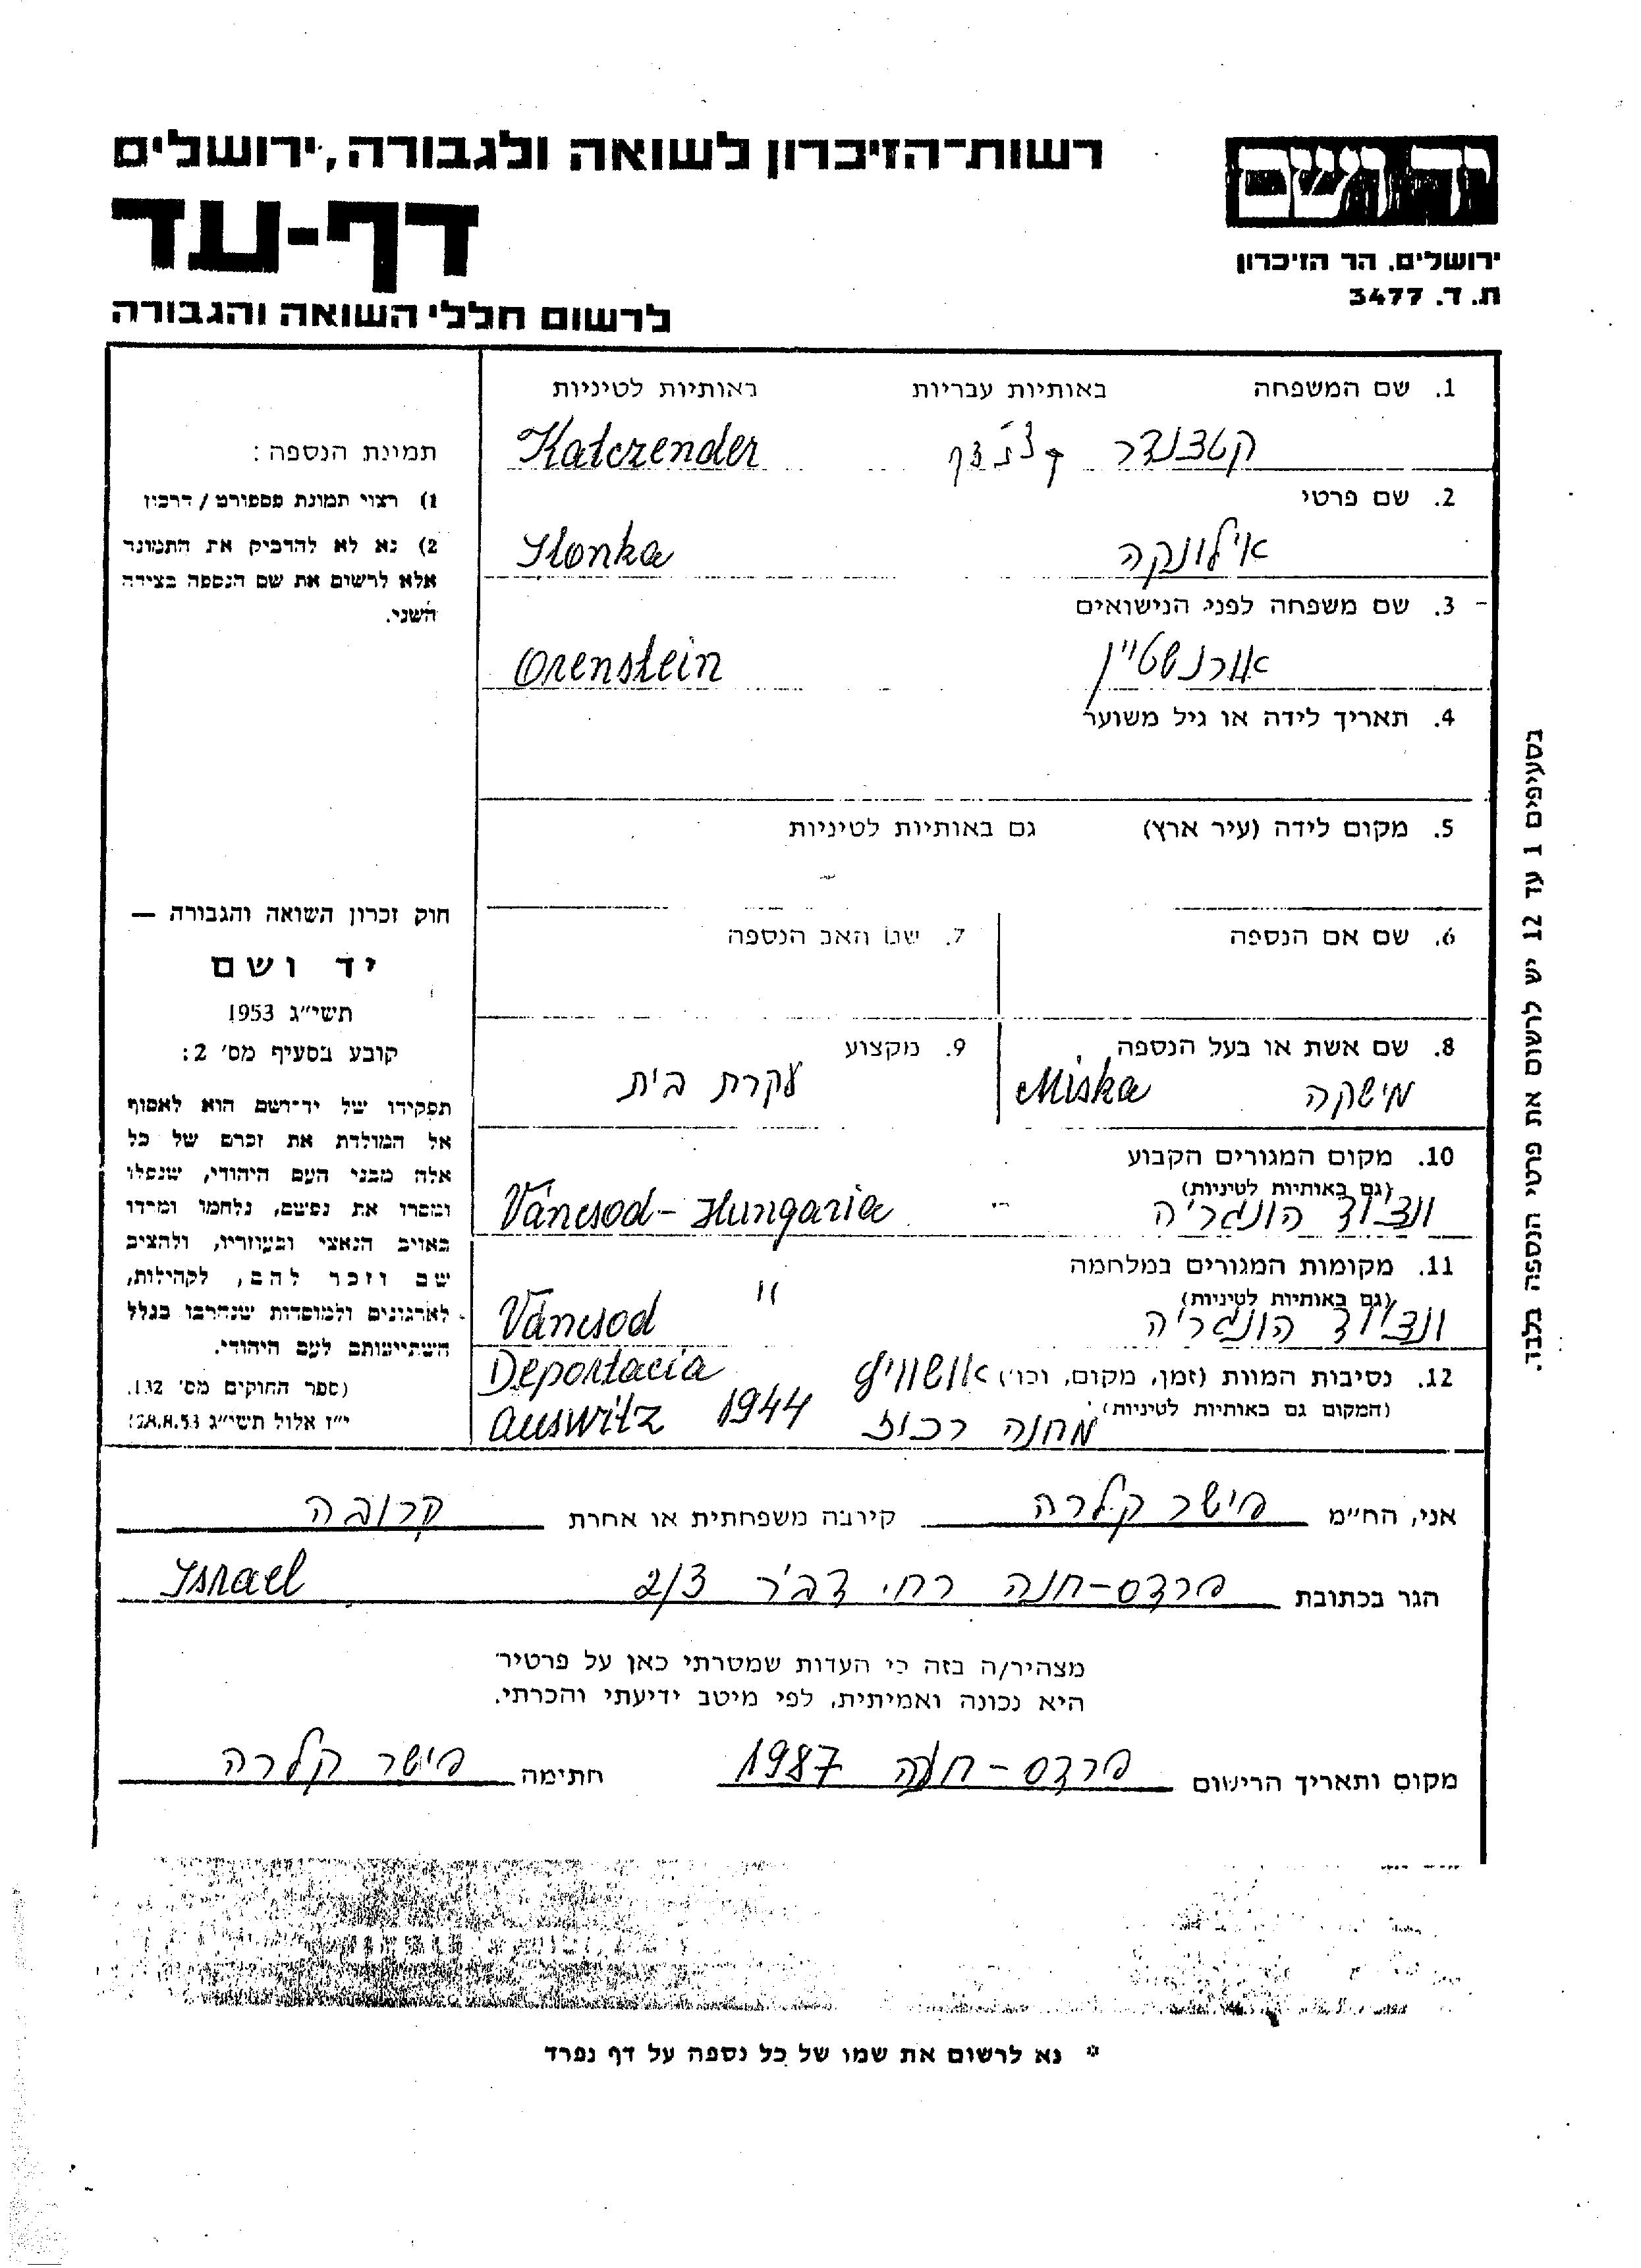 רשות-הזיכרון לשואה ולגבורה, ירושלים
דף-עד
לרשום חללי השואה והגבורה
יד ושם
ירושלים, הר הזיכרון
ת. ד. 3477
1. שם המשפחה באותיות עבריות באותיות לטיניות
קטצנדר Katczender
2. שם פרטי
אילונקה Ilonka
3. שם משפחה לפני הנישואים
אורנשטיין Orenstein
4. תאריך לידה או גיל משוער
5. מקום לידה (עיר ארץ) גם באותיות לטיניות
6. שם אם הנספה 7. שם האב הנספה
8. שם אשת או בעל הנספה 9. מקצוע
מישקה Miska עקרת בית
10. מקום המגורים הקבוע
(גם באותיות לטיניות)
ונצ'וד הונגריה Váncsod - Hungaria
11. מקומות המגורים במלחמה
(גם באותיות לטיניות)
ונצ'וד הונגריה Váncsod "
12. נסיבות המוות (זמן, מקום, וכו') אושוויץ Deportacia
(המקום גם באותיות לטיניות)
מחנה רכוז 1944 Auswitz
תמונת הנספה:
1) רצוי תמונת פספורט / דרכון
2) נא לא להדביק את התמונה
אלא לרשום את שם הנספה בצידה
השני.
חוק זכרון השואה והגבורה —
יד ושם
תשי"ג 1953
קובע בסעיף מס' 2:
תפקידו של יד-ושם הוא לאסוף
אל המולדת את זכרם של כל
אלה מבני העם היהודי, שנפלו
ומסרו את נפשם, נלחמו ומרדו
באויב הנאצי ובעוזריו, ולהציב
שם וזכר להם, לקהילות,
לארגונים ולמוסדות שנחרבו בגלל
השתייכותם לעם היהודי.
(ספר החוקים מס' 132,
י"ז אלול תשי"ג 28.8.53)
בסעיפים 1 עד 12 יש לרשום את פרטי הנספה בלבד.
אני, הח"מ פישר קלרה קירבה משפחתית או אחרת קרובה
הגר בכתובת פרדס-חנה רח' 2/3 Israel
מצהיר/ה בזה כי העדות שמסרתי כאן על פרטיה
היא נכונה ואמיתית, לפי מיטב ידיעתי והכרתי.
מקום ותאריך הרישום פרדס-חנה 1987 חתימה פישר קלרה
* נא לרשום את שמו של כל נספה על דף נפרד